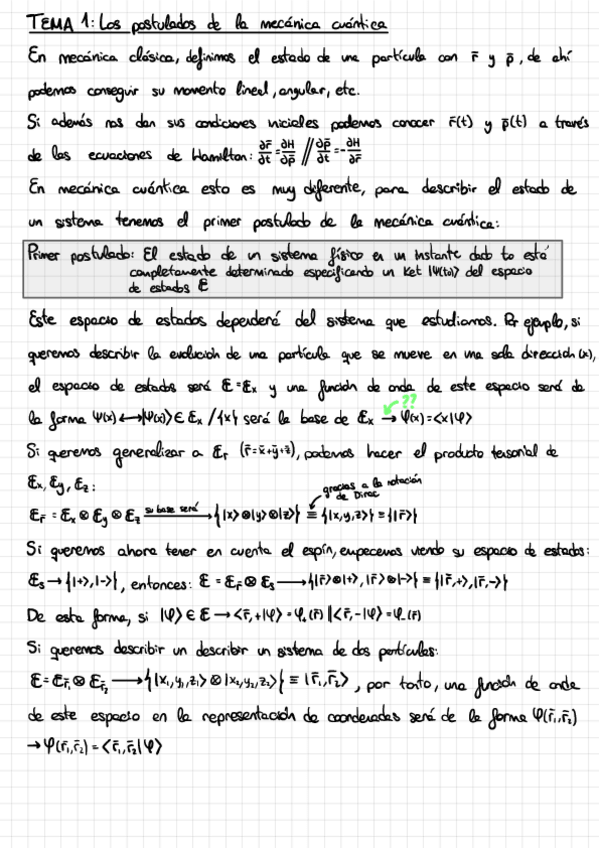 TEMA 1: Los postulados de la mecánica cuántica
En mecánica clásica, definimos el estado de una partícula con r̄ y p̄, de ahí
podemos conseguir su momento lineal, angular, etc.
Si además nos dan sus condiciones iniciales podemos conocer r̄(t) y p̄(t) a través
de las ecuaciones de Hamilton: ∂r̄/∂t = ∂H/∂p̄ // ∂p̄/∂t = -∂H/∂r̄
En mecánica cuántica esto es muy diferente, para describir el estado de
un sistema tenemos el primer postulado de la mecánica cuántica:
Primer postulado: El estado de un sistema físico en un instante dado to está
completamente determinado especificando un Ket |Ψ(to)> del espacio
de estados Ɛ
Este espacio de estados dependerá del sistema que estudiamos. Por ejemplo, si
queremos describir la evolución de una partícula que se mueve en una sola dirección (x),
el espacio de estados será Ɛ=Ɛx y una función de onda de este espacio será de
??
la forma Ψ(x) ⟷ |Ψ(x)> ∈ Ɛx / {x} será la base de Ɛx → φ(x) = <x|φ>
Si queremos generalizar a Ɛr̄ (r̄=x̄+ȳ+z̄), podemos hacer el producto tensorial de
Ɛx, Ɛy, Ɛz:
gracias a la notación
de Dirac
Ɛr̄ = Ɛx ⊗ Ɛy ⊗ Ɛz su base será → {|x> ⊗ |y> ⊗ |z>} ≡ {|x,y,z>} ≡ {|r̄>}
Si queremos ahora tener en cuenta el espín, empecemos viendo su espacio de estados:
Ɛs → {|+>, |->}, entonces: Ɛ = Ɛr̄ ⊗ Ɛs ⟶ {|r̄> ⊗ |+>, |r̄> ⊗ |->} ≡ {|r̄,+>, |r̄,->}
De esta forma, si |φ> ∈ Ɛ → <r̄,+|φ> = φ+(r̄) || <r̄,-|φ> = φ-(r̄)
Si queremos describir un describir un sistema de dos partículas:
Ɛ = Ɛr̄₁ ⊗ Ɛr̄₂ ⟶ {|x₁,y₁,z₁> ⊗ |x₂,y₂,z₂>} ≡ |r̄₁,r̄₂>, por tanto, una función de onda
de este espacio en la representación de coordenadas será de la forma φ(r̄₁,r̄₂)
→ φ(r̄₁,r̄₂) = <r̄₁,r̄₂|φ>